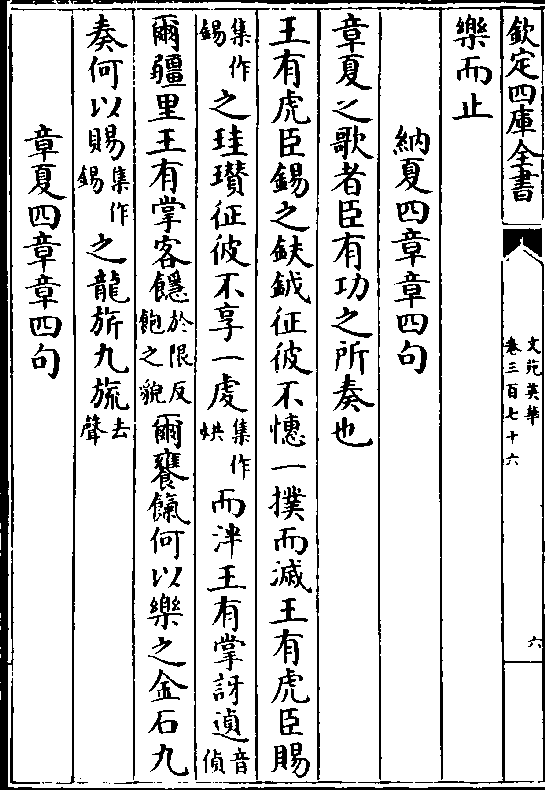 欽定四庫全書
文苑英華
卷三百七十六
六
樂而止
納夏四章章四句
章夏之歌者臣有功之所奏也
王有虎臣錫之鈇鉞征彼不憓一撲而滅王有虎臣賜
集作錫之珪瓚征彼不享一處集作烘而泮王有掌訝遉音偵
爾疆里王有掌客饂於限反飽之貌爾饔餼何以樂之金石九
奏何以賜集作錫之龍旂九旒去聲
章夏四章章四句